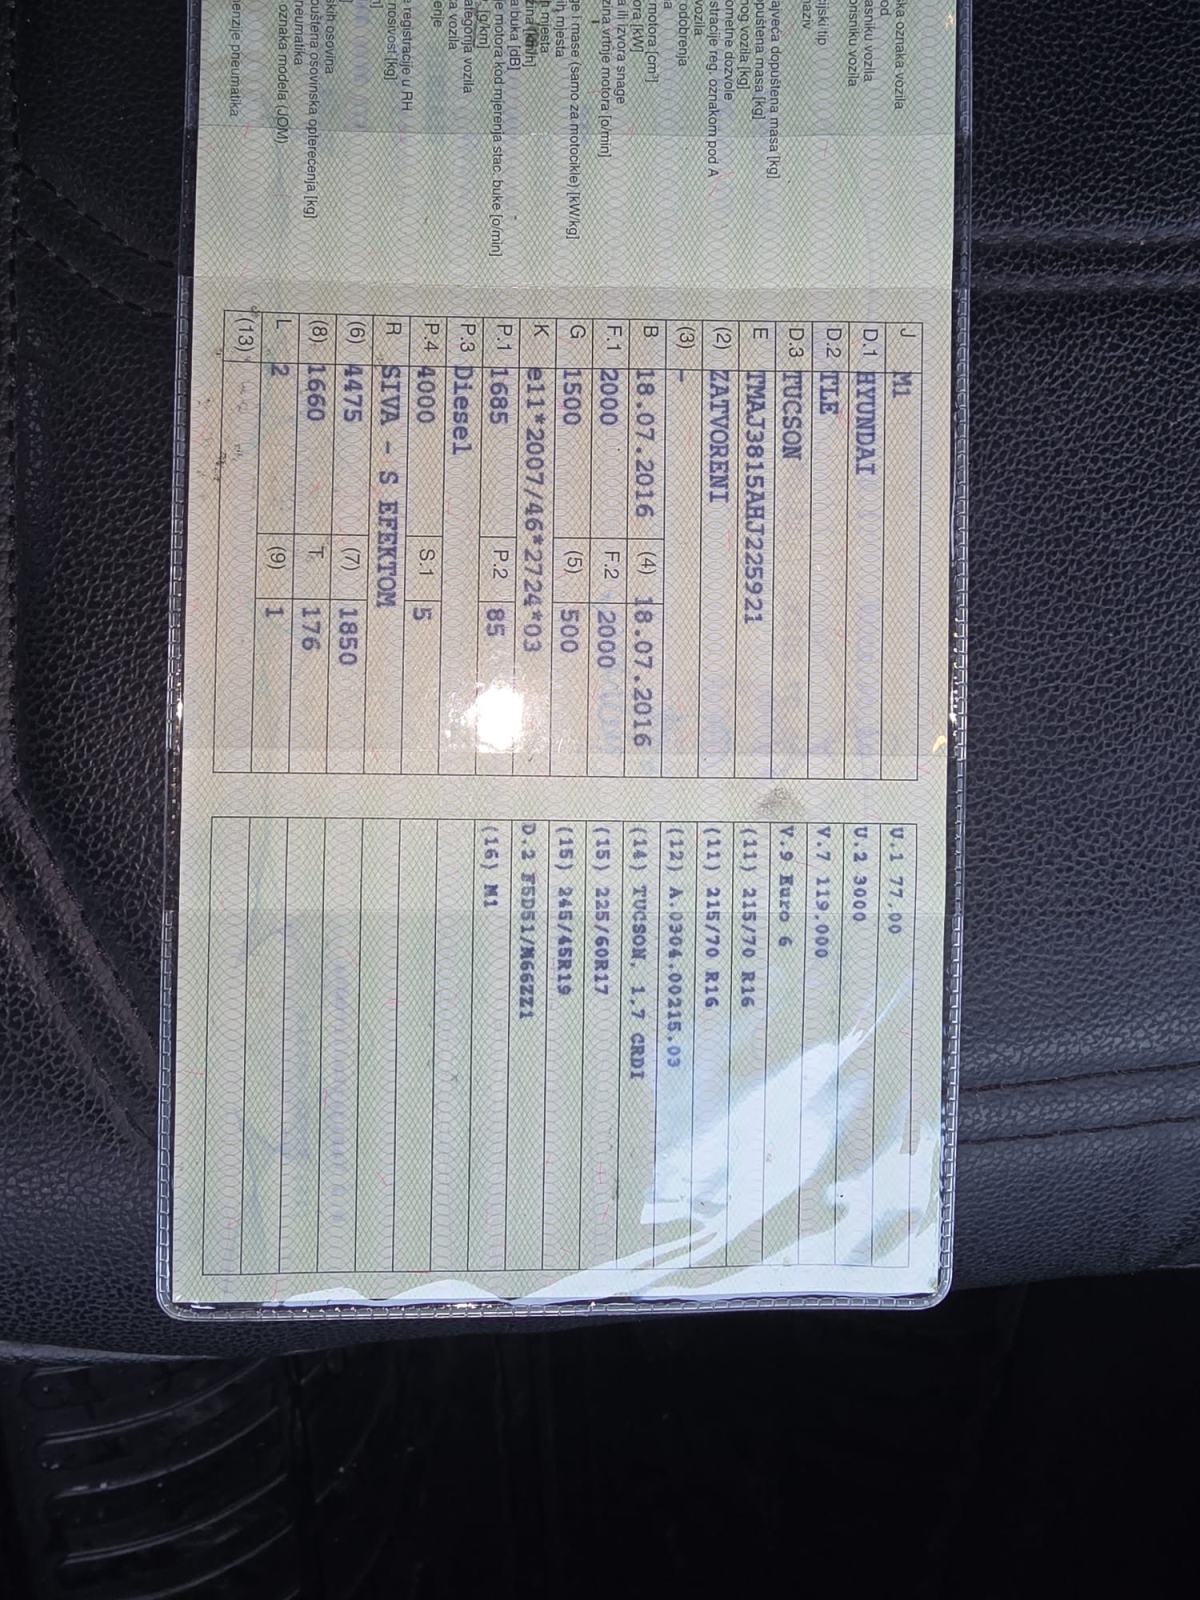 ska oznaka vozila
od
asniku vozila
orisniku vozila
ijski tip
naziv
ajveća dopuštena masa [kg]
opuštena masa [kg]
nog vozila [kg]
ometne dozvole
stracije reg. oznakom pod A
vozila
rodobrenja
a
motora [cm³]
ora [kW]
a ili izvora snage
zina vrtnje motora [o/min]
ge i mase (samo za motocikle) [kW/kg]
mjesta
mjesta
zina [km/h]
a buka [dB]
e motora kod mjerenja stac. buke [o/min]
[g/km]
ategorija vozila
a vozila
enje
a registracije u RH
nosivost [kg]
]
skih osovina
ouštena osovinska opterećenja [kg]
neumatika
oznaka modela (JOM)
enzije pneumatika
J M1
D.1 HYUNDAI
D.2 TLE
D.3 TUCSON
E TMAJ3815AHJ225921
(2) ZATVORENI
(3) -
B 18.07.2016 (4) 18.07.2016
F.1 2000 F.2 2000
G 1500 (5) 500
K e11*2007/46*2724*03
P.1 1685 P.2 85
P.3 Diesel
P.4 4000 S.1 5
R SIVA - S EFEKTOM
(6) 4475 (7) 1850
(8) 1660 T. 176
L 2 (9) 1
(13)
U.1 77,00
U.2 3000
V.7 119,000
V.9 Euro 6
(11) 215/70 R16
(11) 215/70 R16
(12) A.0304.00215.03
(14) TUCSON, 1.7 CRDI
(15) 225/60R17
(15) 245/45R19
D.2 F5D51/M66ZZ1
(16) M1